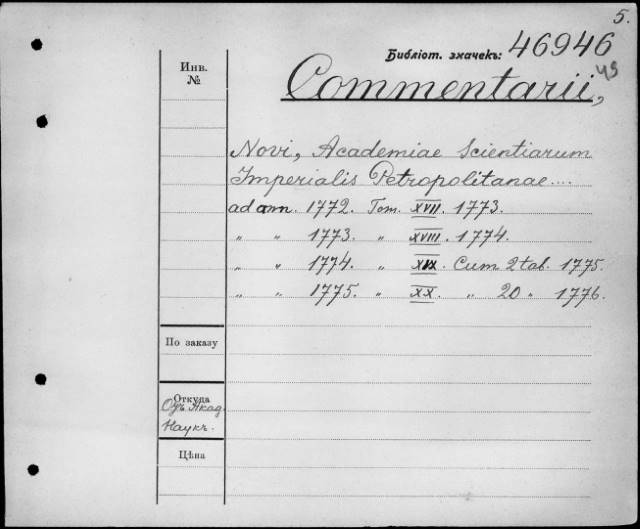 5.
Библіот. значекъ: 46946
Инв.
№
Commentarii,
Novi, Academiae Scientiarum
Imperialis Petropolitanae....
ad ann. 1772. Tom. XVII. 1773.
" " 1773. " XVIII. 1774.
" " 1774. " XIX. Cum 2 tab. 1775.
" " 1775. " XX. " 20 " 1776.
По заказу
Откуда
Отъ Акад.
Наукъ.
Цѣна